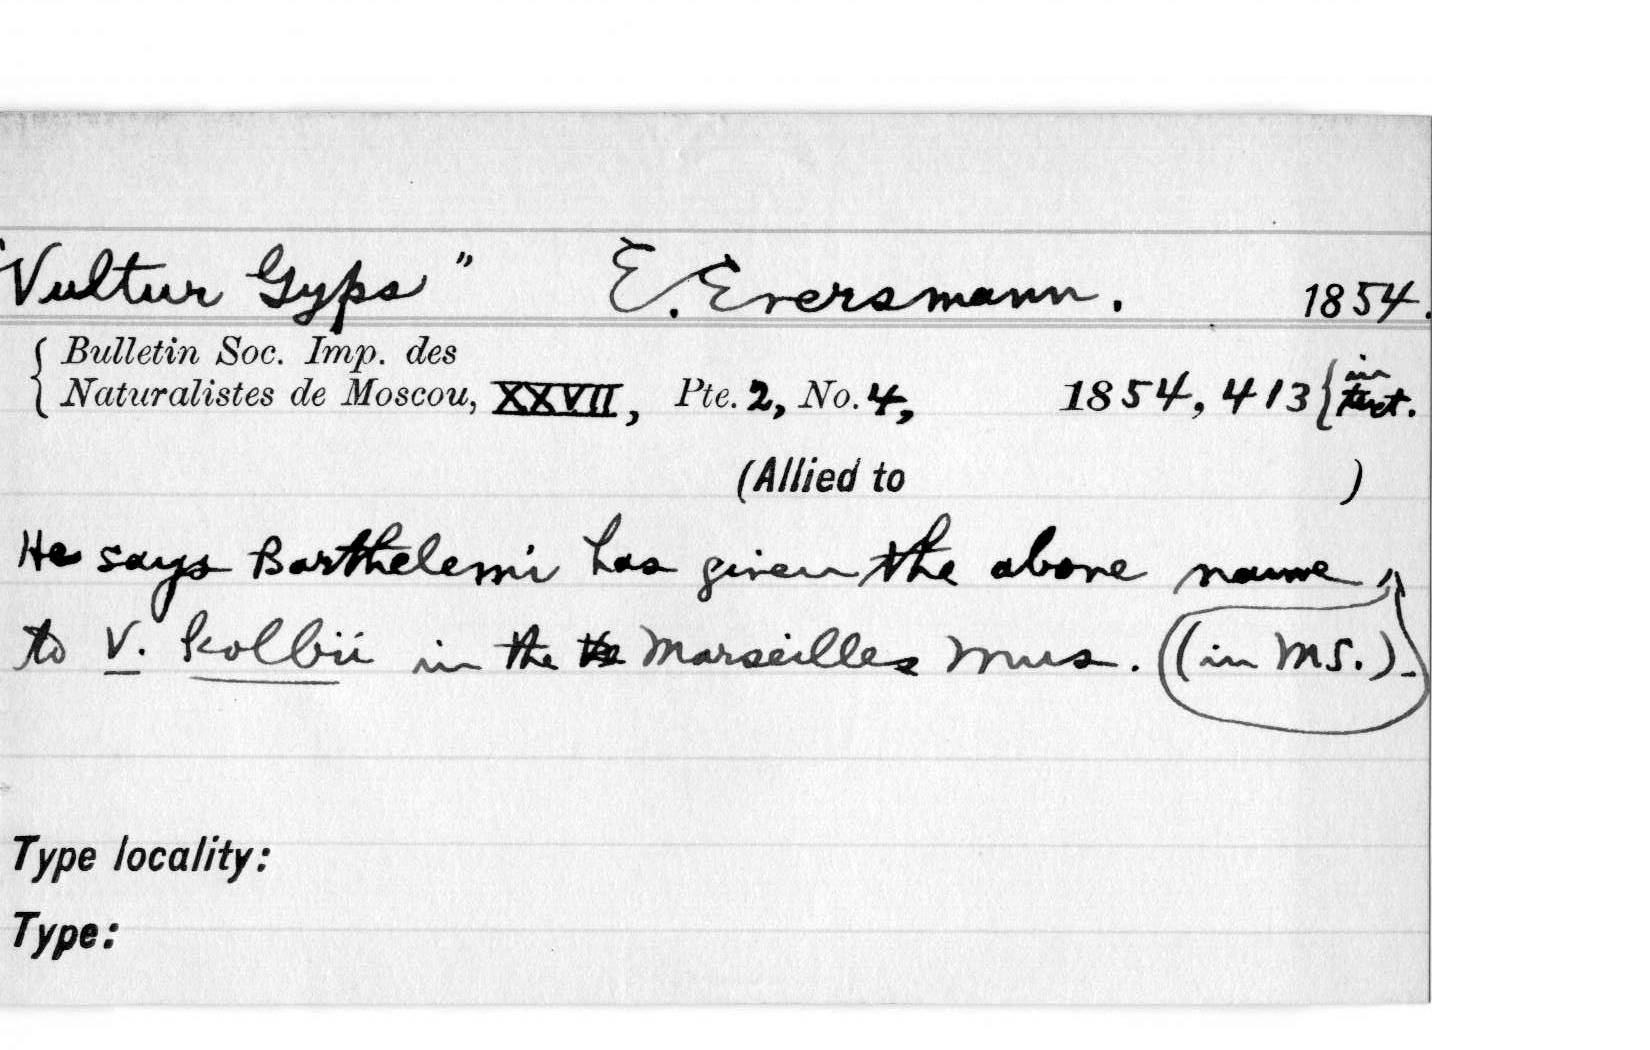 "Vultur Gyps" E. Eversmann. 1854.
{ Bulletin Soc. Imp. des
Naturalistes de Moscou, XXVII, Pte. 2, No. 4, 1854, 413 { in text.
(Allied to )
He says Barthelemi has given the above name,
to V. kolbii in the Marseilles Mus. (in MS.).
Type locality:
Type: